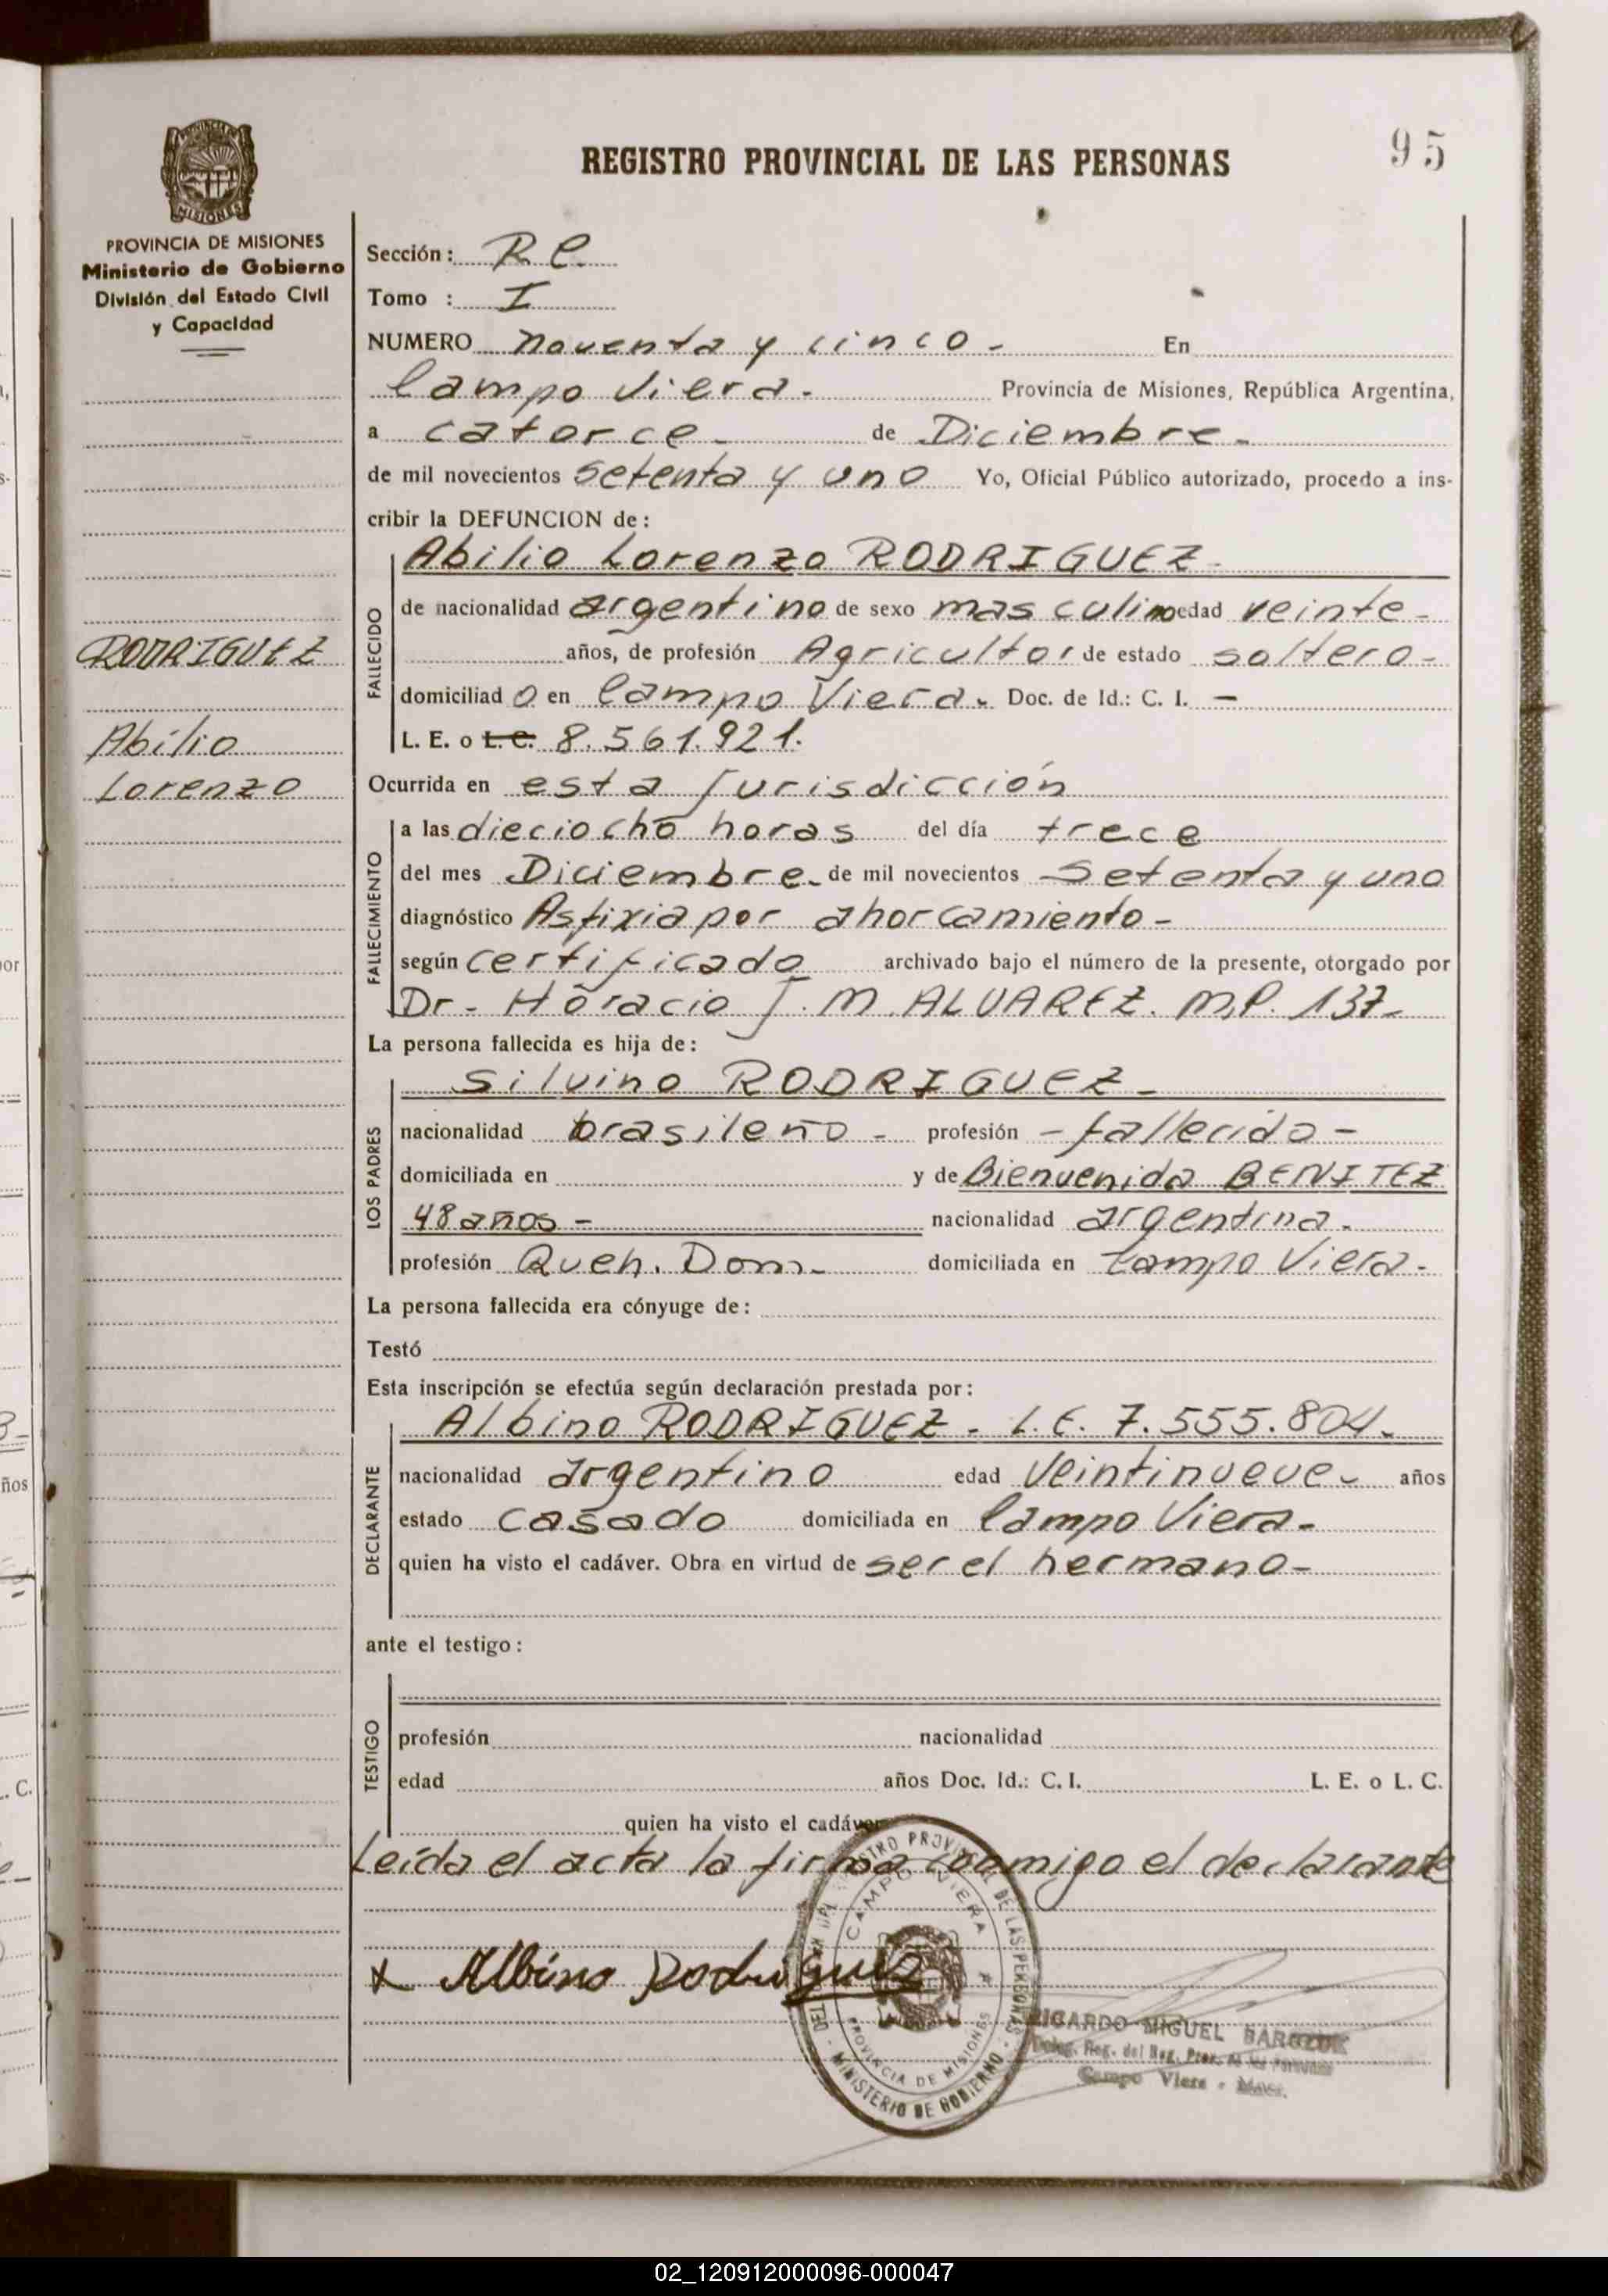 95
REGISTRO PROVINCIAL DE LAS PERSONAS
PROVINCIA DE MISIONES
Ministerio de Gobierno
División del Estado Civil
y Capacidad
RODRIGUEZ
Abilio
Lorenzo
Sección: R C.
Tomo : I
NUMERO noventa y cinco - En
Campo Viera. Provincia de Misiones, República Argentina,
a catorce - de Diciembre -
de mil novecientos setenta y uno Yo, Oficial Público autorizado, procedo a ins-
cribir la DEFUNCION de:
FALLECIDO
Abilio Lorenzo RODRIGUEZ -
de nacionalidad argentino de sexo masculino edad veinte -
años, de profesión Agricultor de estado soltero -
domiciliad o en Campo Viera. Doc. de Id.: C. I. -
L. E. o L. C. 8.561.921.
Ocurrida en esta jurisdicción
FALLECIMIENTO
a las dieciocho horas del día trece
del mes Diciembre - de mil novecientos setenta y uno
diagnóstico Asfixia por ahorcamiento -
según certificado archivado bajo el número de la presente, otorgado por
Dr - Horacio J. M. ALVAREZ. M.P. 137 -
La persona fallecida es hija de:
LOS PADRES
Silvino RODRIGUEZ -
nacionalidad brasileño - profesión - fallecido -
domiciliada en y de Bienvenida BENITEZ
48 años - nacionalidad argentina -
profesión Queh. Dom. - domiciliada en Campo Viera -
La persona fallecida era cónyuge de:
Testó
Esta inscripción se efectúa según declaración prestada por:
DECLARANTE
Albino RODRIGUEZ - L.E. 7.555.804 -
nacionalidad argentino edad Veintinueve - años
estado casado domiciliada en Campo Viera -
quien ha visto el cadáver. Obra en virtud de ser el hermano -
ante el testigo:
TESTIGO
profesión nacionalidad
edad años Doc. Id.: C. I. L. E. o L. C.
quien ha visto el cadáver
Leída el acta la firma conmigo el declarante
x Albino Rodriguez
CAMPO VIERA
PROVINCIA DE MISIONES
MINISTERIO DE GOBIERNO
RICARDO MIGUEL
Campo Viera - Mnes.
02_120912000096-000047